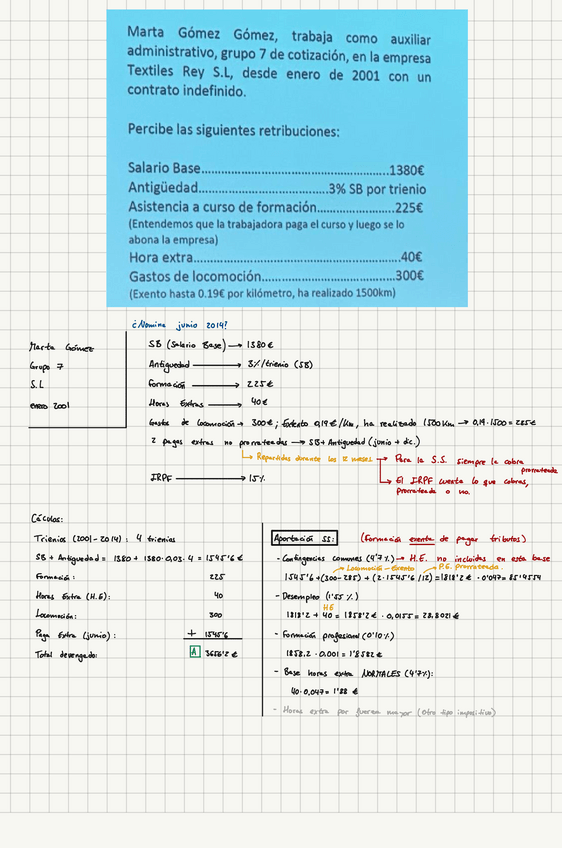 Marta Gómez Gómez, trabaja como auxiliar
administrativo, grupo 7 de cotización, en la empresa
Textiles Rey S.L, desde enero de 2001 con un
contrato indefinido.
Percibe las siguientes retribuciones:
Salario Base..........................................................1380€
Antigüedad.................................3% SB por trienio
Asistencia a curso de formación......................225€
(Entendemos que la trabajadora paga el curso y luego se lo
abona la empresa)
Hora extra.............................................................40€
Gastos de locomoción.......................................300€
(Exento hasta 0.19€ por kilómetro, ha realizado 1500km)
¿Nomina junio 2014?
Marta Gómez
Grupo 7
S.L
enero 2001
SB (Salario Base) → 1380€
Antiguedad → 3%/trienio (SB)
Formación → 225€
Horas Extras → 40€
Gastos de locomoción → 300€; Exento 0,19€/Km, ha realizado 1500Km → 0,19·1500 = 285€
2 pagas extras no prorrateadas → SB + Antiguedad (junio + dic.)
Repartidas durante los 12 meses
→ Para la S.S. siempre la cobra prorrateada
→ El IRPF cuenta lo que cobras, prorrateada o no.
IRPF → 15%
Cálculos:
Trienios (2001-2014): 4 trienios
SB + Antiguedad = 1380 + 1380·0,03·4 = 1545'6€
Formación: 225
Horas Extra (H.E): 40
Locomoción: 300
Paga Extra (junio): + 1545'6
Total devengado: A 3656'2€
Aportación SS: (Formación exenta de pagar tributos)
- Contigencias comunes (4'7%) → H.E. no incluidas en esta base
Locomoción-Exento P.E. prorrateada
1545'6 + (300-285) + (2·1545'6/12) = 1818'2€ · 0'047 = 85'4554
- Desempleo (1'55%)
HE
1818'2 + 40 = 1858'2€ · 0,0155 = 28.8021€
- Formación profesional (0'10%)
1858.2 · 0.001 = 1'8582€
- Base horas extra NORMALES (4'7%):
40·0,047 = 1'88 €
- Horas extra por fuerza mayor (otro tipo impositivo)